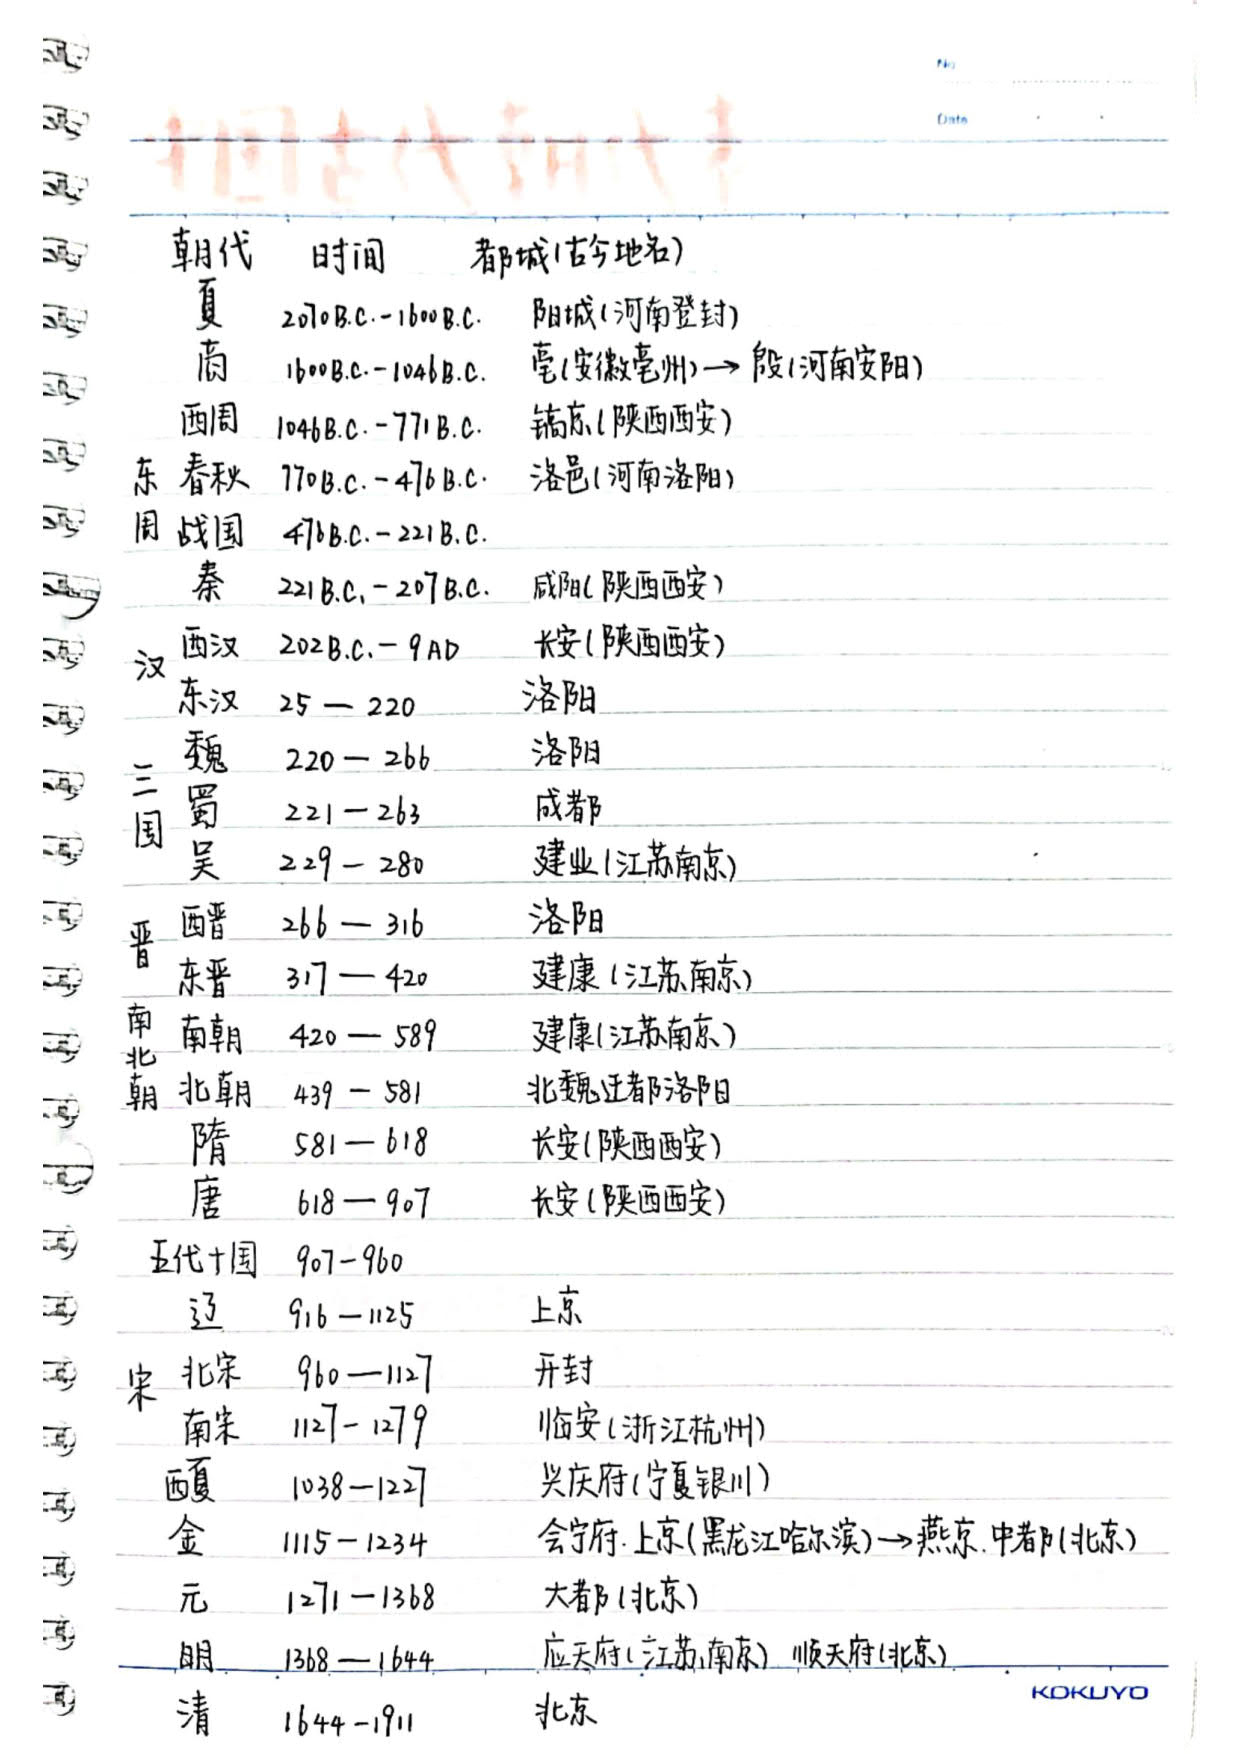 No
Date
朝代 时间 都城(古今地名)
夏 2070B.C.-1600B.C. 阳城(河南登封)
商 1600B.C.-1046B.C. 亳(安徽亳州)→殷(河南安阳)
西周 1046B.C.-771B.C. 镐京(陕西西安)
东 春秋 770B.C.-476B.C. 洛邑(河南洛阳)
周 战国 476B.C.-221B.C.
秦 221B.C.-207B.C. 咸阳(陕西西安)
汉 西汉 202B.C.-9AD 长安(陕西西安)
东汉 25—220 洛阳
三 魏 220—266 洛阳
国 蜀 221—263 成都
吴 229—280 建业(江苏南京)
晋 西晋 266—316 洛阳
东晋 317—420 建康(江苏南京)
南 南朝 420—589 建康(江苏南京)
北
朝 北朝 439—581 北魏迁都洛阳
隋 581—618 长安(陕西西安)
唐 618—907 长安(陕西西安)
五代十国 907-960
辽 916—1125 上京
宋 北宋 960—1127 开封
南宋 1127-1279 临安(浙江杭州)
西夏 1038—1227 兴庆府(宁夏银川)
金 1115-1234 会宁府.上京(黑龙江哈尔滨)→燕京.中都(北京)
元 1271—1368 大都(北京)
明 1368—1644 应天府(江苏南京) 顺天府(北京)
KOKUYO
清 1644-1911 北京